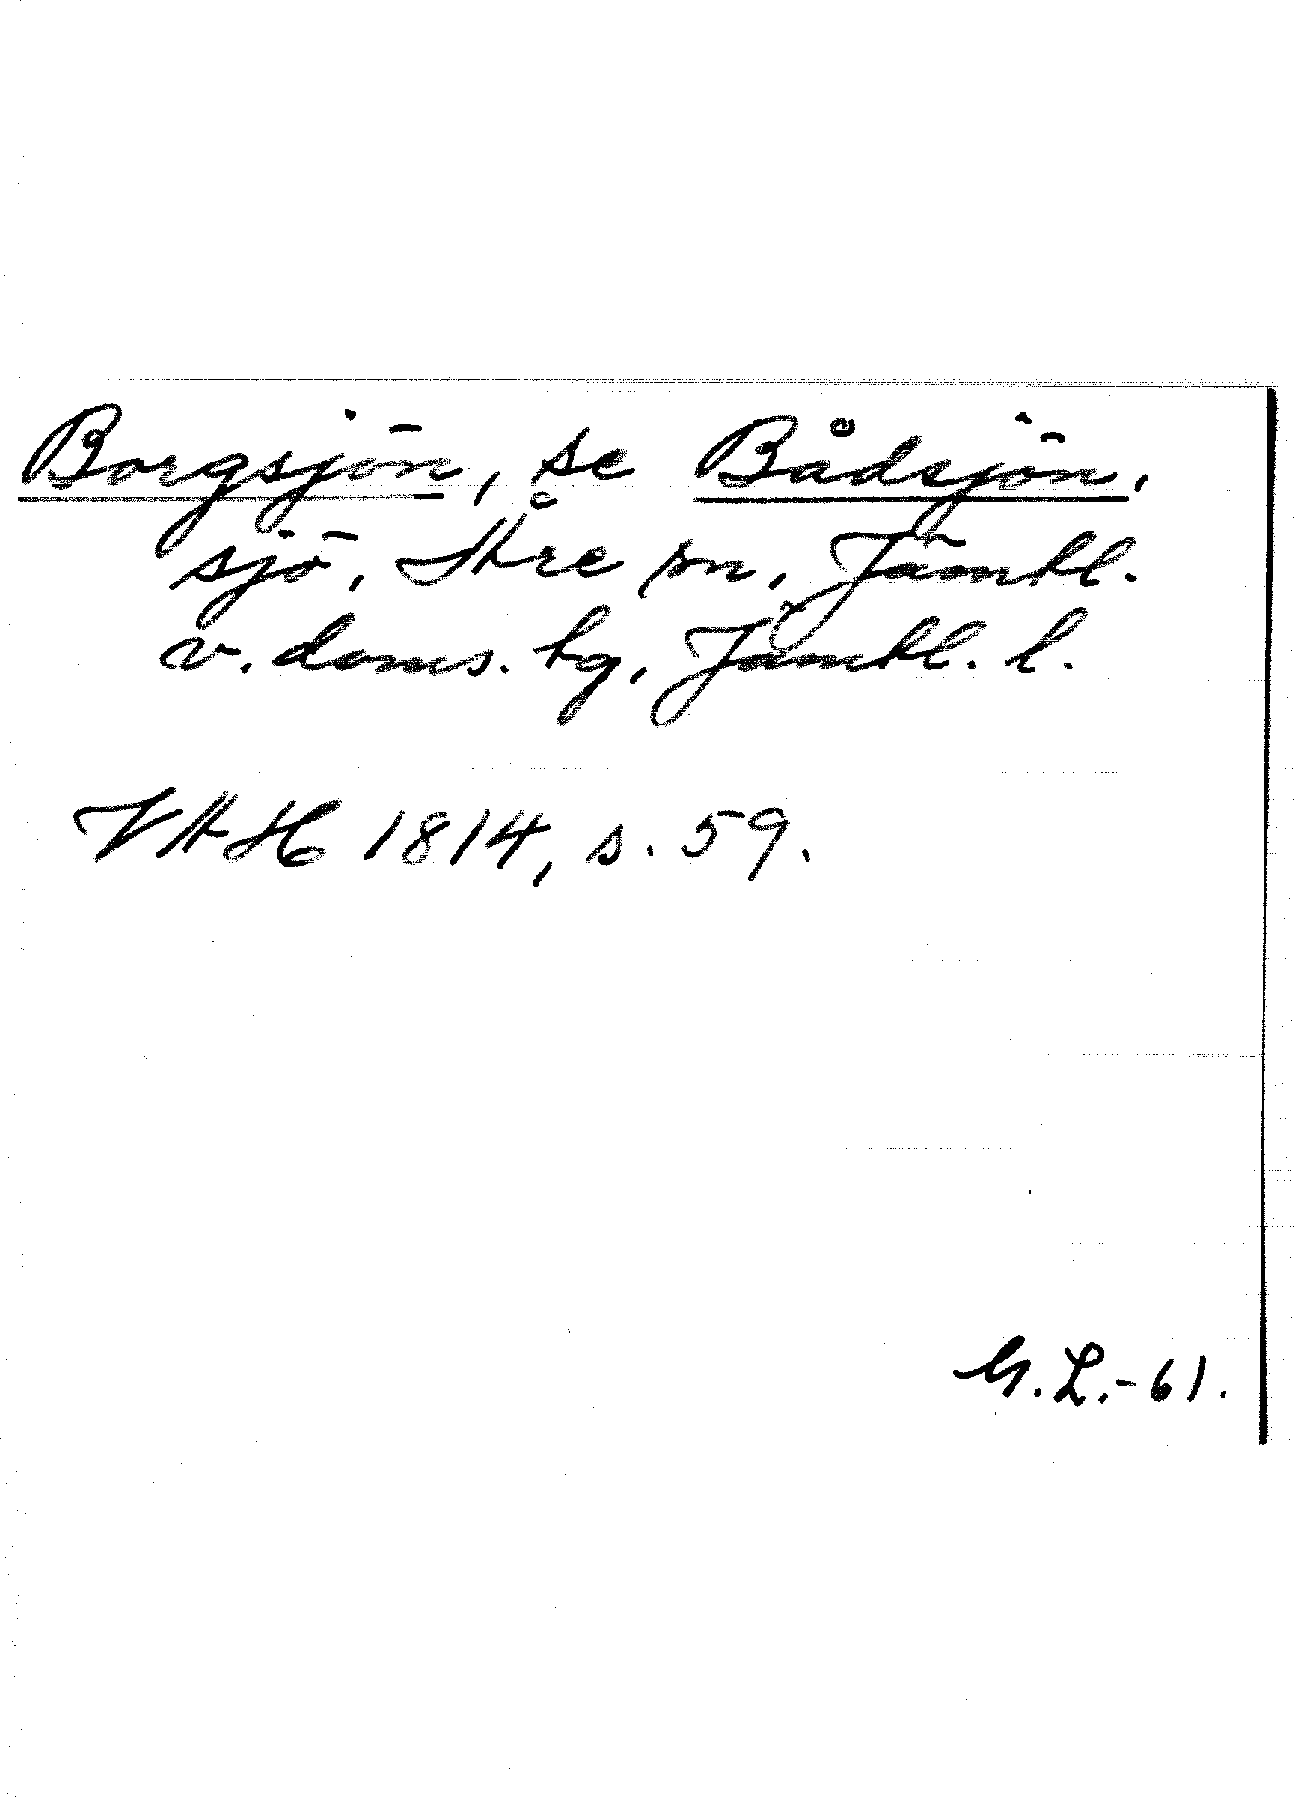 Borgsjön, se Bådsjön,
sjö, Åre sn, Jämtl.
v. doms. tg, Jämtl. l.
VAH 1814, s. 59.
G. L.-61.